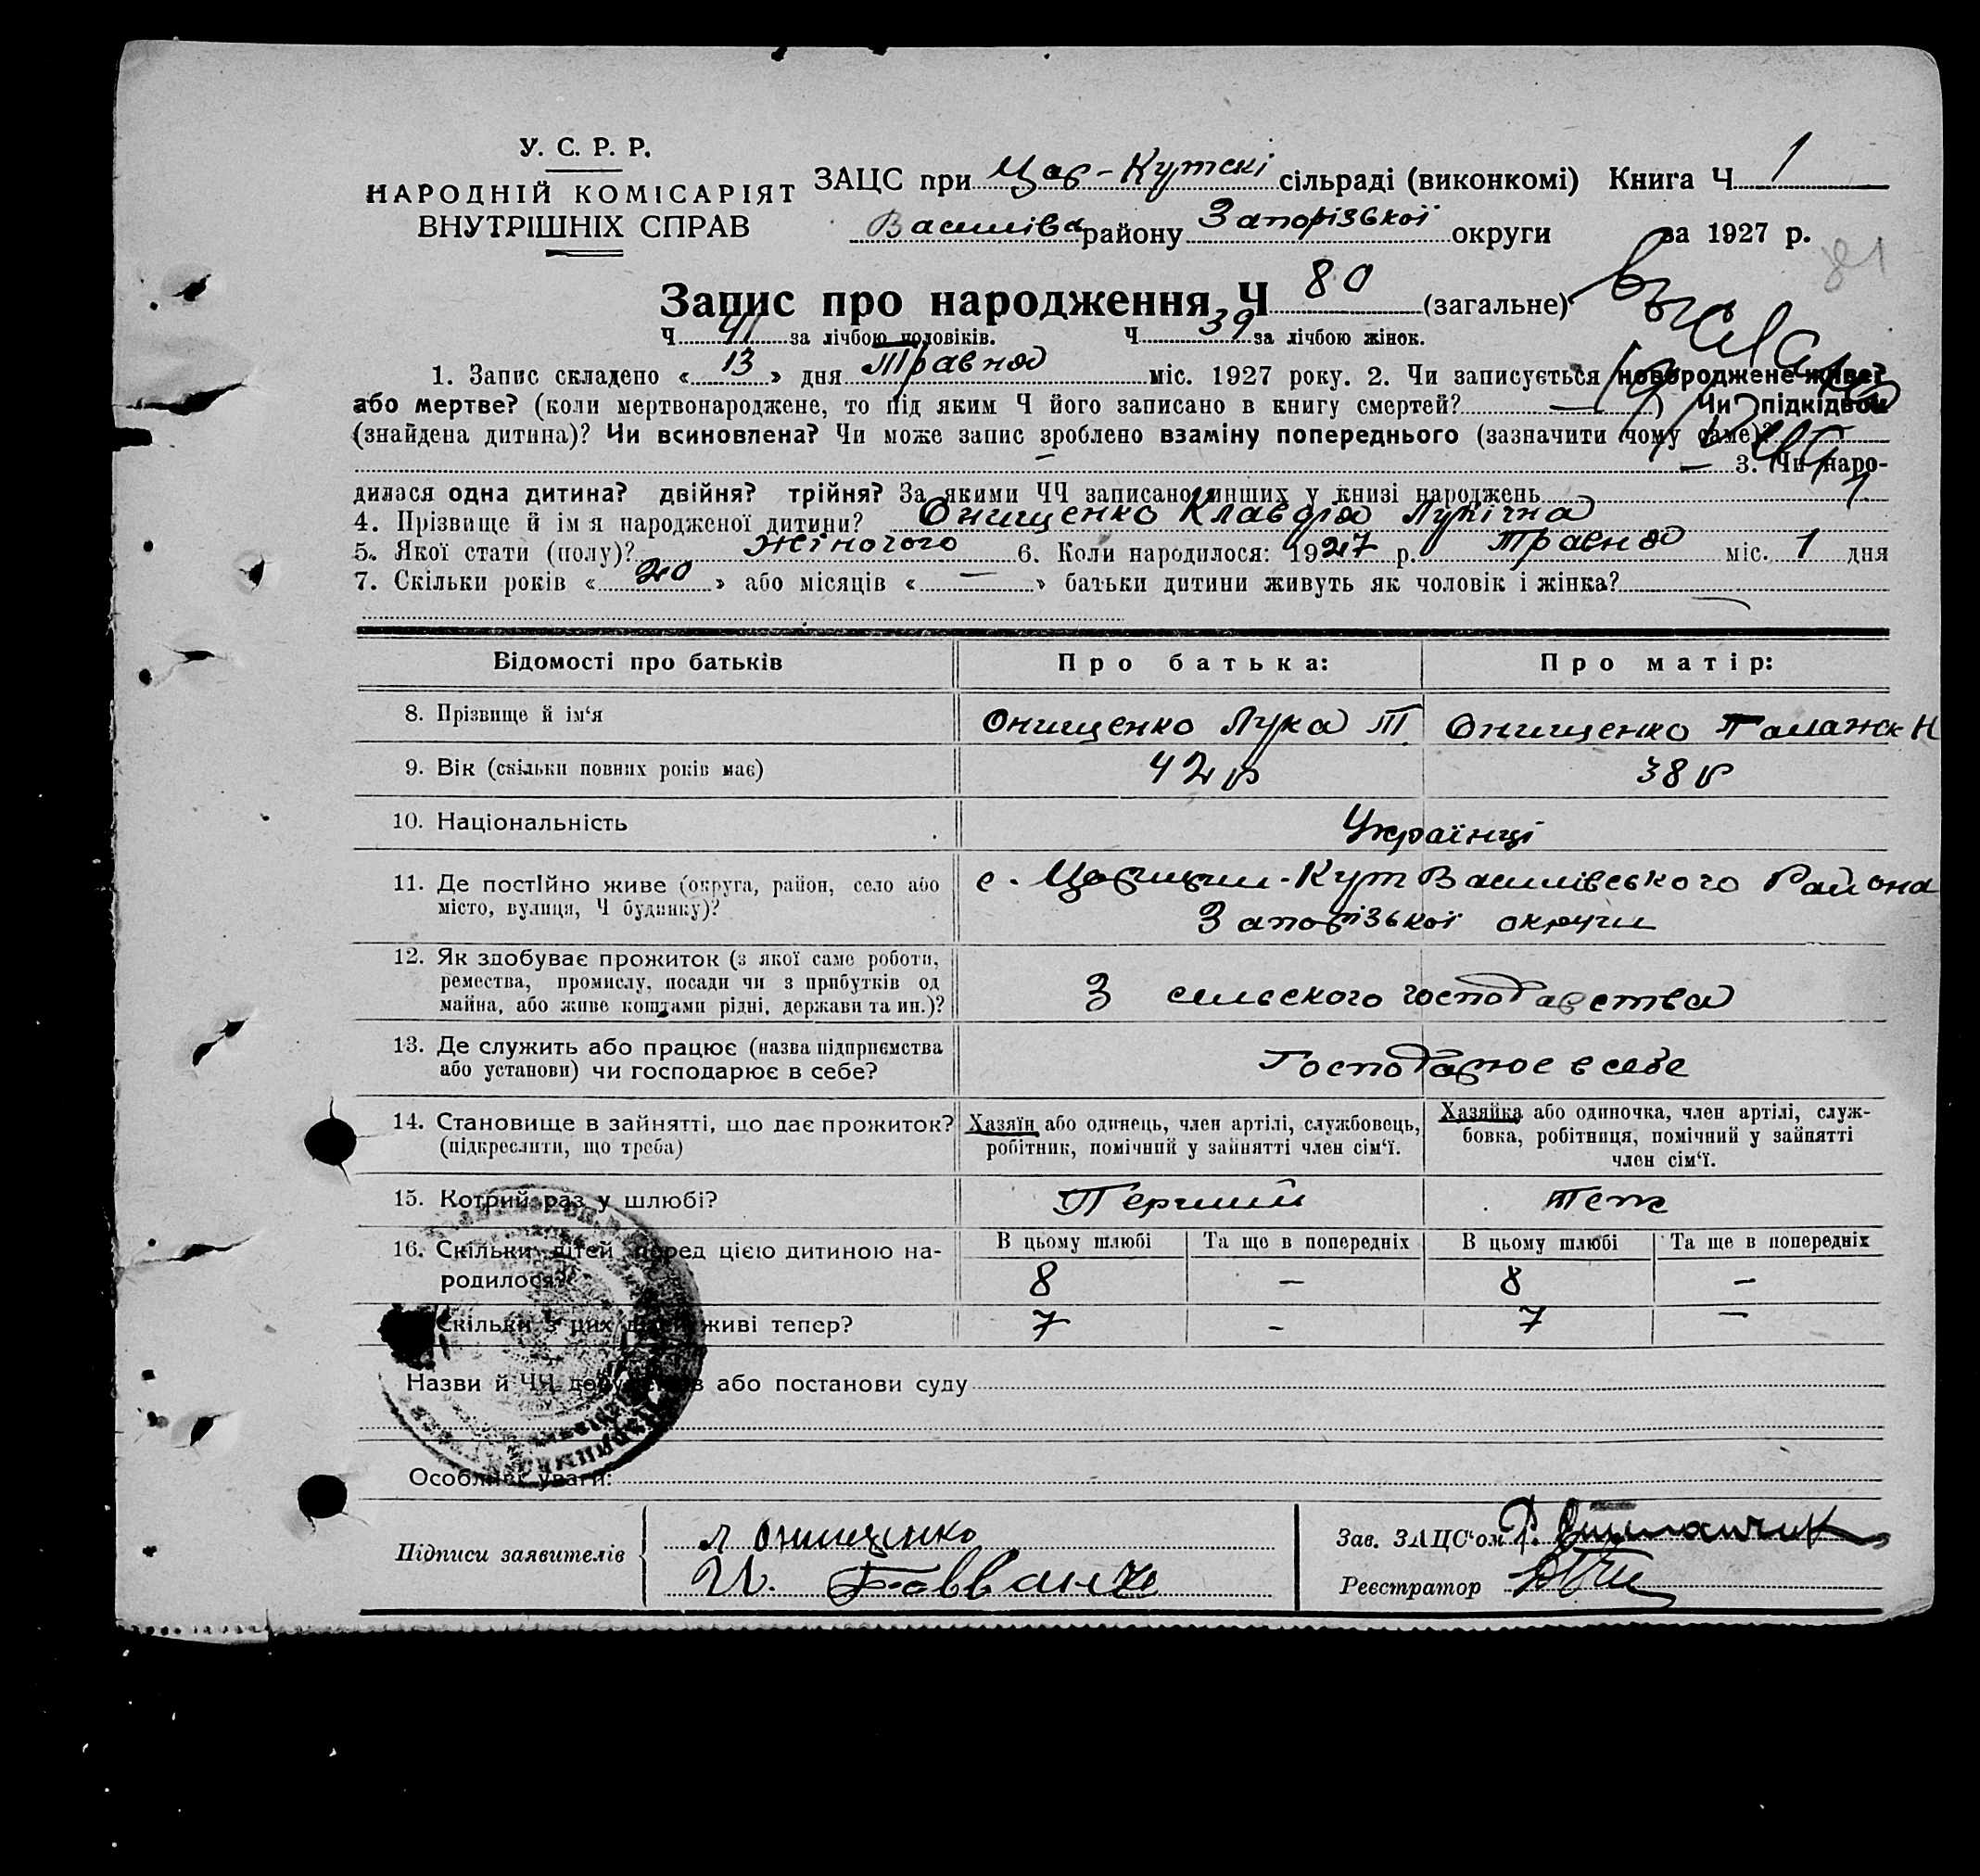 У. С. Р. Р.
НАРОДНІЙ КОМІСАРІЯТ
ВНУТРІШНІХ СПРАВ
ЗАЦС при Цар-Кутскі сільраді (виконкомі) Книга Ч 1
Василівс району Запорізької округи за 1927 р.
81
Запис про народження Ч 80 (загальне)
Ч 41 за лічбою чоловіків. Ч 39 за лічбою жінок.
1. Запис складено « 13 » дня Травня міс. 1927 року. 2. Чи записується новороджене живе?
або мертве? (коли мертвонароджене, то під яким Ч його записано в книгу смертей? — ) Чи підкідьок
(знайдена дитина)? Чи всиновлена? Чи може запис зроблено взаміну попереднього (зазначити чому саме)?
— 3. Чи наро-
дилася одна дитина? двійня? трійня? За якими ЧЧ записано инших у книзі народжень
4. Прізвище й ім'я народженої дитини? Онищенко Клавдія Лукічна
5. Якої стати (полу)? Жіночого 6. Коли народилося: 1927 р. Травня міс. 1 дня
7. Скільки років « 20 » або місяців « — » батьки дитини живуть як чоловік і жінка?
Відомості про батьків Про батька: Про матір:
8. Прізвище й ім'я Онищенко Лука Т Онищенко Н
9. Вік (скільки повних років має) 42 р 38 р
10. Національність Українці
11. Де постійно живе (округа, район, село або
місто, вулиця, Ч будинку)?
с. Царицин-Кут Василівського Района
Запорізької округи
12. Як здобуває прожиток (з якої саме роботи,
ремества, промислу, посади чи з прибутків од
майна, або живе коштами рідні, держави та ин.)?
З сельского господарства
13. Де служить або працює (назва підприємства
або установи) чи господарює в себе?
Господарює в себе
14. Становище в зайнятті, що дає прожиток?
(підкреслити, що треба)
Хазяїн або одинець, член артілі, службовець,
робітник, помічний у зайнятті член сім'ї.
Хазяйка або одиночка, член артілі, служ-
бовка, робітниця, помічний у зайнятті
член сім'ї.
15. Котрий раз у шлюбі? Перший теж
16. Скільки дітей перед цією дитиною на-
родилося?
В цьому шлюбі Та ще в попередніх В цьому шлюбі Та ще в попередніх
8 — 8 —
Скільки з цих дітей живі тепер? 7 — 7 —
Назви й ЧЧ документів або постанови суду
Особливі уваги:
Підписи заявителів
Л Онищенко
И.
Зав. ЗАЦС'ом
Реєстратор